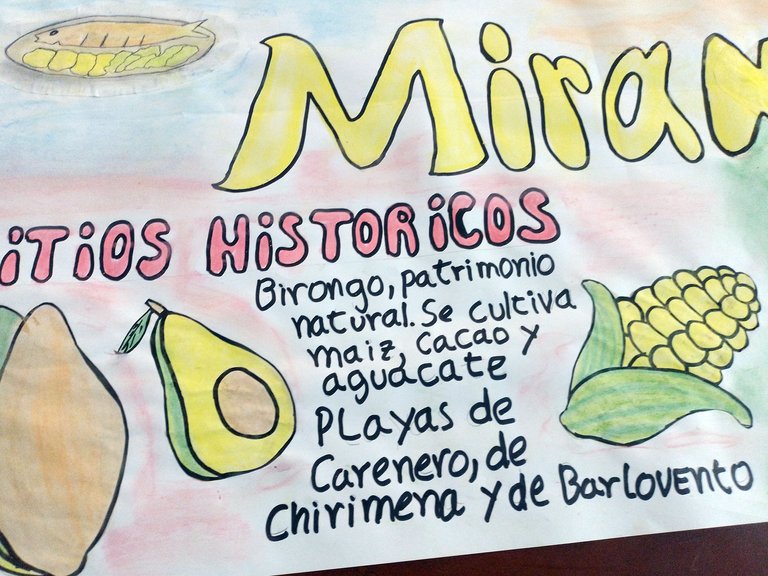 Miran
itios Historicos
Birongo, patrimonio
natural. Se cultiva
maiz, cacao y
aguacate
Playas de
Carenero, de
Chirimena y de Barlovento